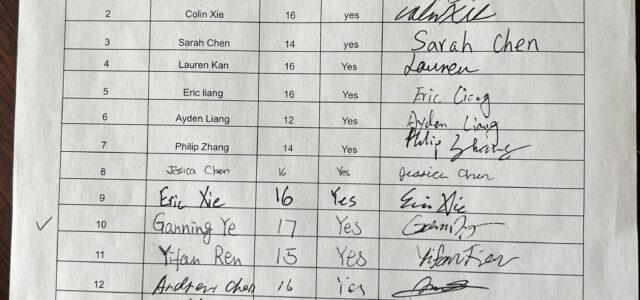 2 Colin Xie 16 yes Colin Xie
3 Sarah Chen 14 yes Sarah Chen
4 Lauren Kan 16 Yes Lauren
5 Eric liang 16 Yes Eric Liang
6 Ayden Liang 12 Yes Ayden Liang
7 Philip Zhang 14 Yes Philip Zhang
8 Jesica Chen 16 Yes Jessica Chen
9 Eric Xie 16 Yes Eric Xie
10 Ganning Ye 17 Yes
11 Yifan Ren 15 Yes Yifan Ren
12 Andrew Chen 16 Yes